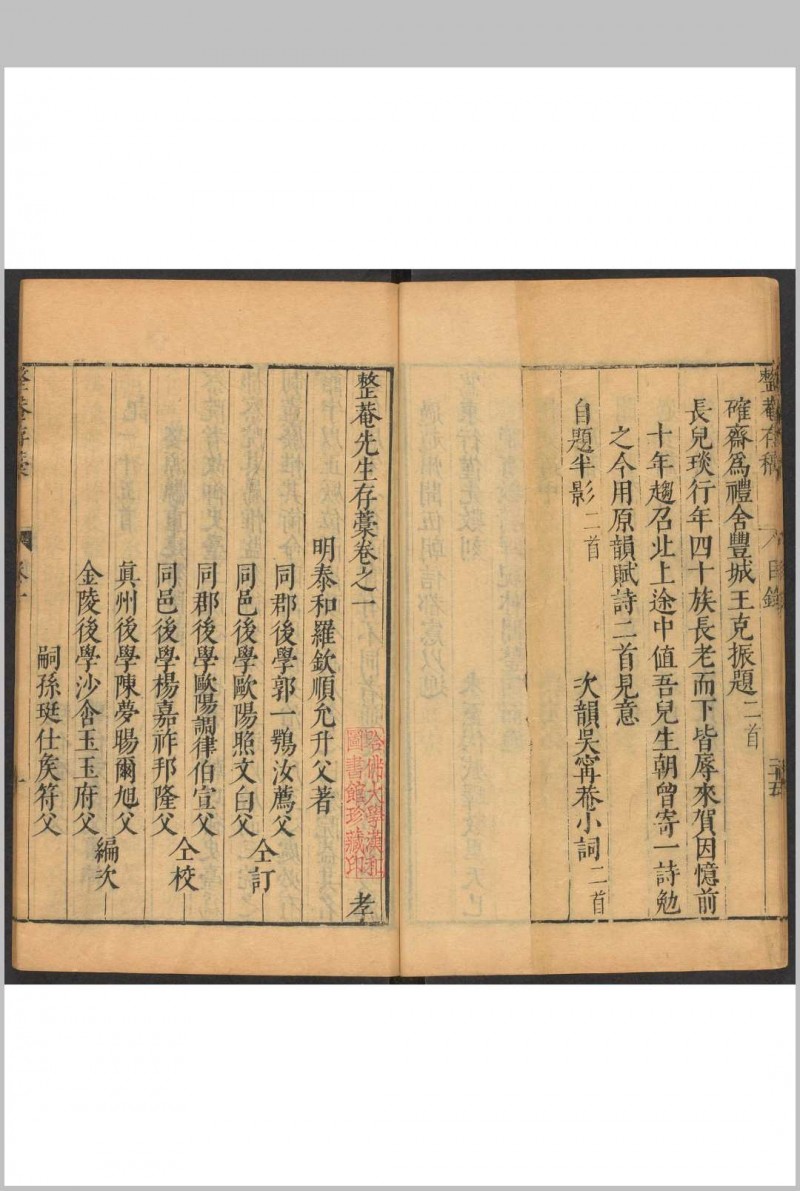 整菴存稿 目錄 三十五
確齋爲禮舍豐城王克振題二首
長兒琰行年四十族長老而下皆辱來賀因憶前
十年趨召北上途中值吾兒生朝曾寄一詩勉
之今用原韻賦詩二首見意
自題半影二首 次韻吳寗菴小詞二首
整菴先生存藁卷之一 孝
明泰和羅欽順允升父著
同郡後學郭一鶚汝薦父
同邑後學歐陽照文白父
仝訂
同郡後學歐陽調律伯宣父
同邑後學楊嘉祚邦隆父
仝校
真州後學陳夢暘爾旭父
金陵後學沙舍玉玉府父
編次
嗣孫珽仕矦符父
整菴存藁 卷一 一
哈佛大學漢和
圖書館珍藏印